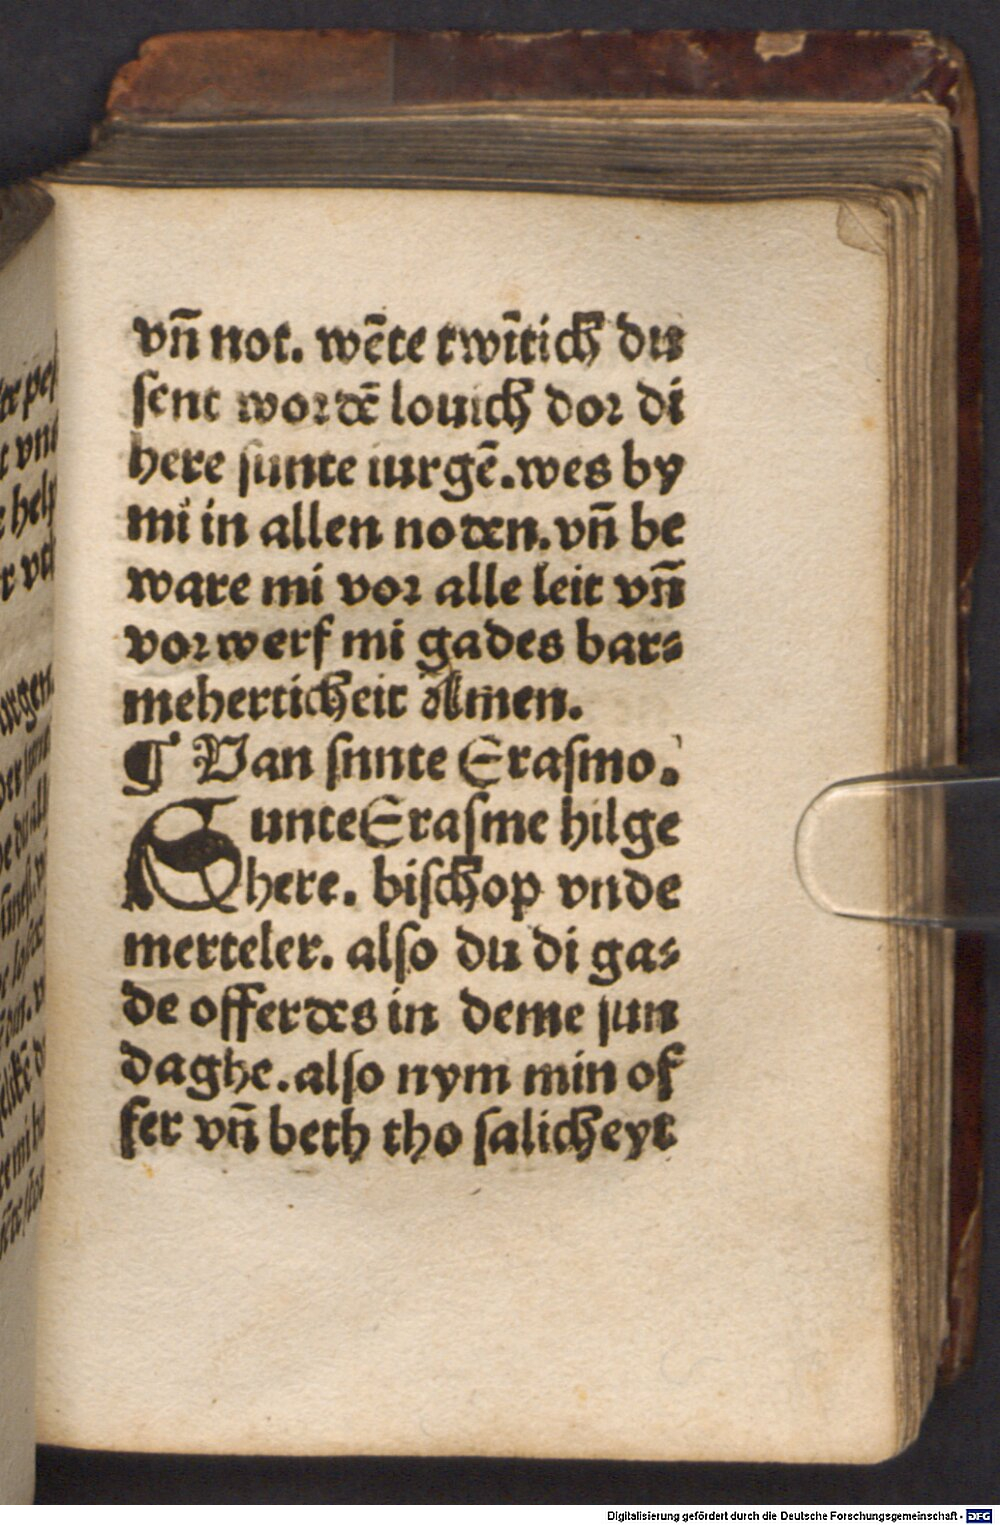 vn̄ not. wēte twītich du
sent wordē louich dor di
here sunte iurgē. wes by
mi in allen noden. vn̄ be
ware mi vor alle leit vn̄
vorwerf mi gades bar⸗
meherticheit Amen.
¶ Van snnte Erasmo.
Sunte Erasme hilge
here. bischop vnde
merteler. also du di ga⸗
de offerdes in deme sun
daghe. also nym min of
fer vn̄ beth tho salicheyt
Digitalisierung gefördert durch die Deutsche Forschungsgemeinschaft - DFG